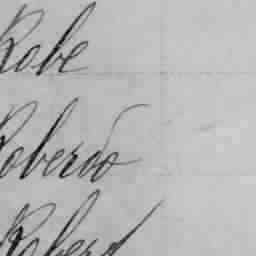 Robe
Roberto
Robert